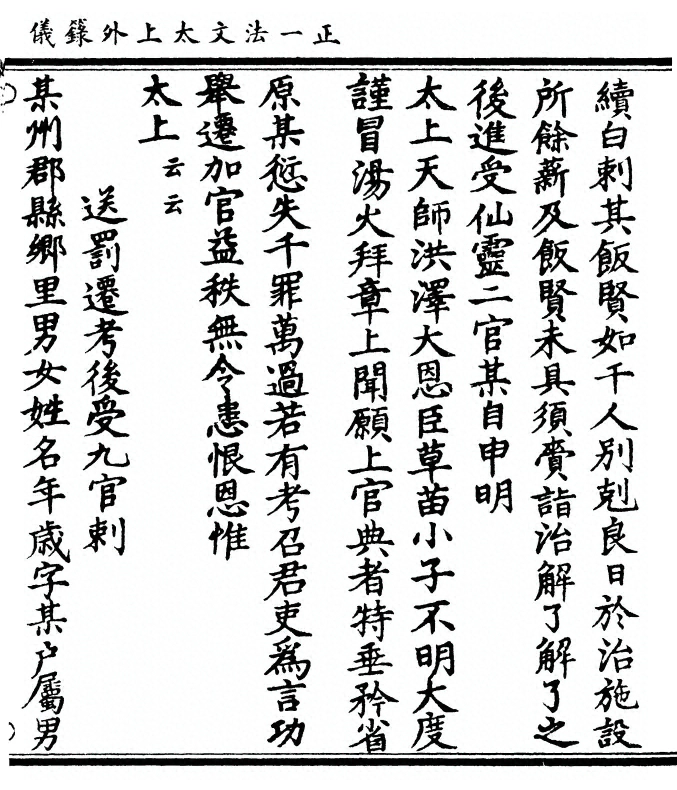 正一法文太上外籙儀
續白剌其飯賢如干人別剋良日於治施設
所餘薪及飯賢未具須賷詣治解了解了之
後進受仙靈二官某自申明
太上天師洪澤大恩臣草苗小子不明大度
謹冒湯火拜章上聞願上官典者特垂矜省
原某愆失千罪萬過若有考召君吏爲言功
舉遷加官益秩無令恚恨恩惟
太上云云
送罰遷考後受九官剌
某州郡縣鄉里男女姓名年歲字某户屬男